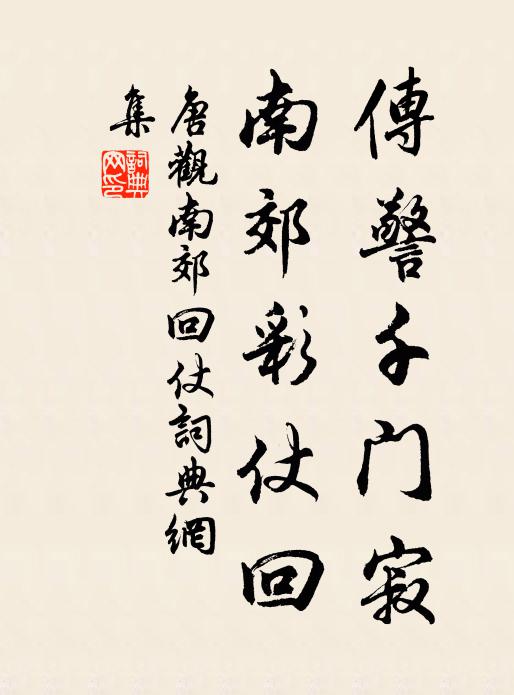 傳警千门寂
南郊彩仗回
唐觀南郊回仗詞典網
集
詞典
网印